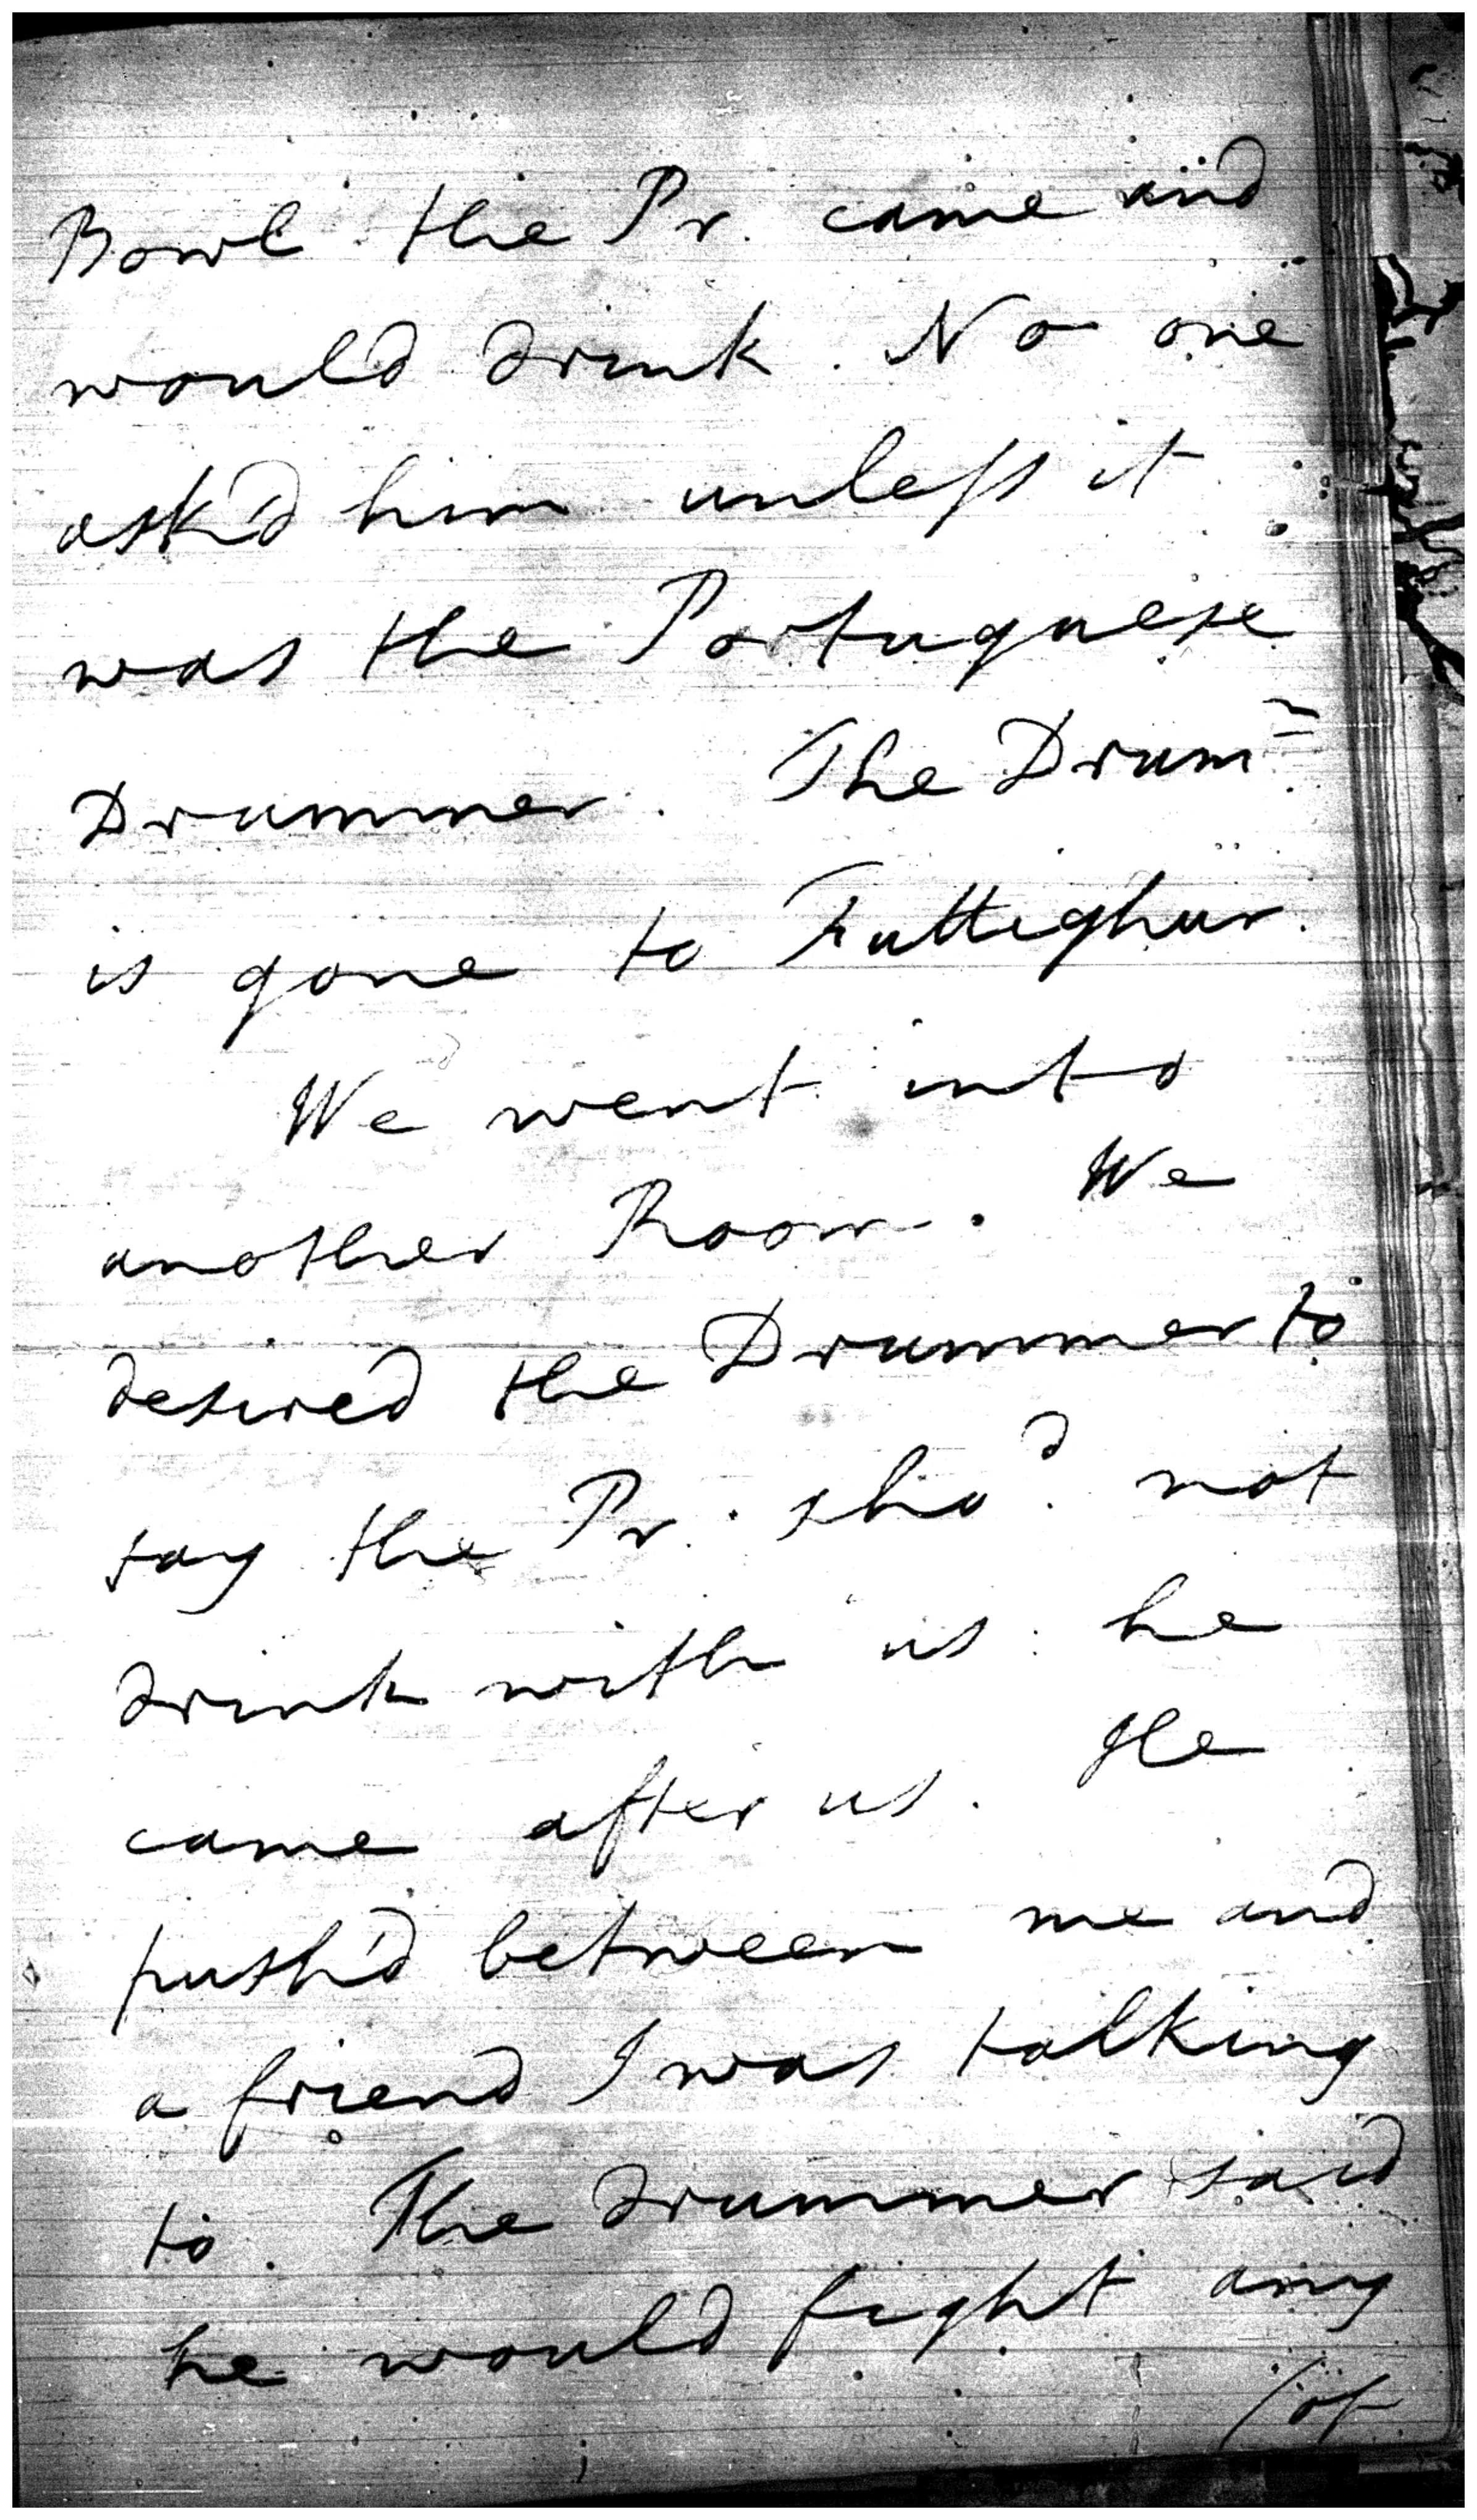 Bowl the Pr. came and
would drink. No one
ask'd him unless it
was the Portuguese
Drummer. The Drumr
is gone to Futtighur.
We went into
another Room. We
desired the Drummer to
say the Pr. shod. not
drink with us: he
came after us. He
push'd between me and
a friend I was talking
to. The Drummer said
he would fight any
(of